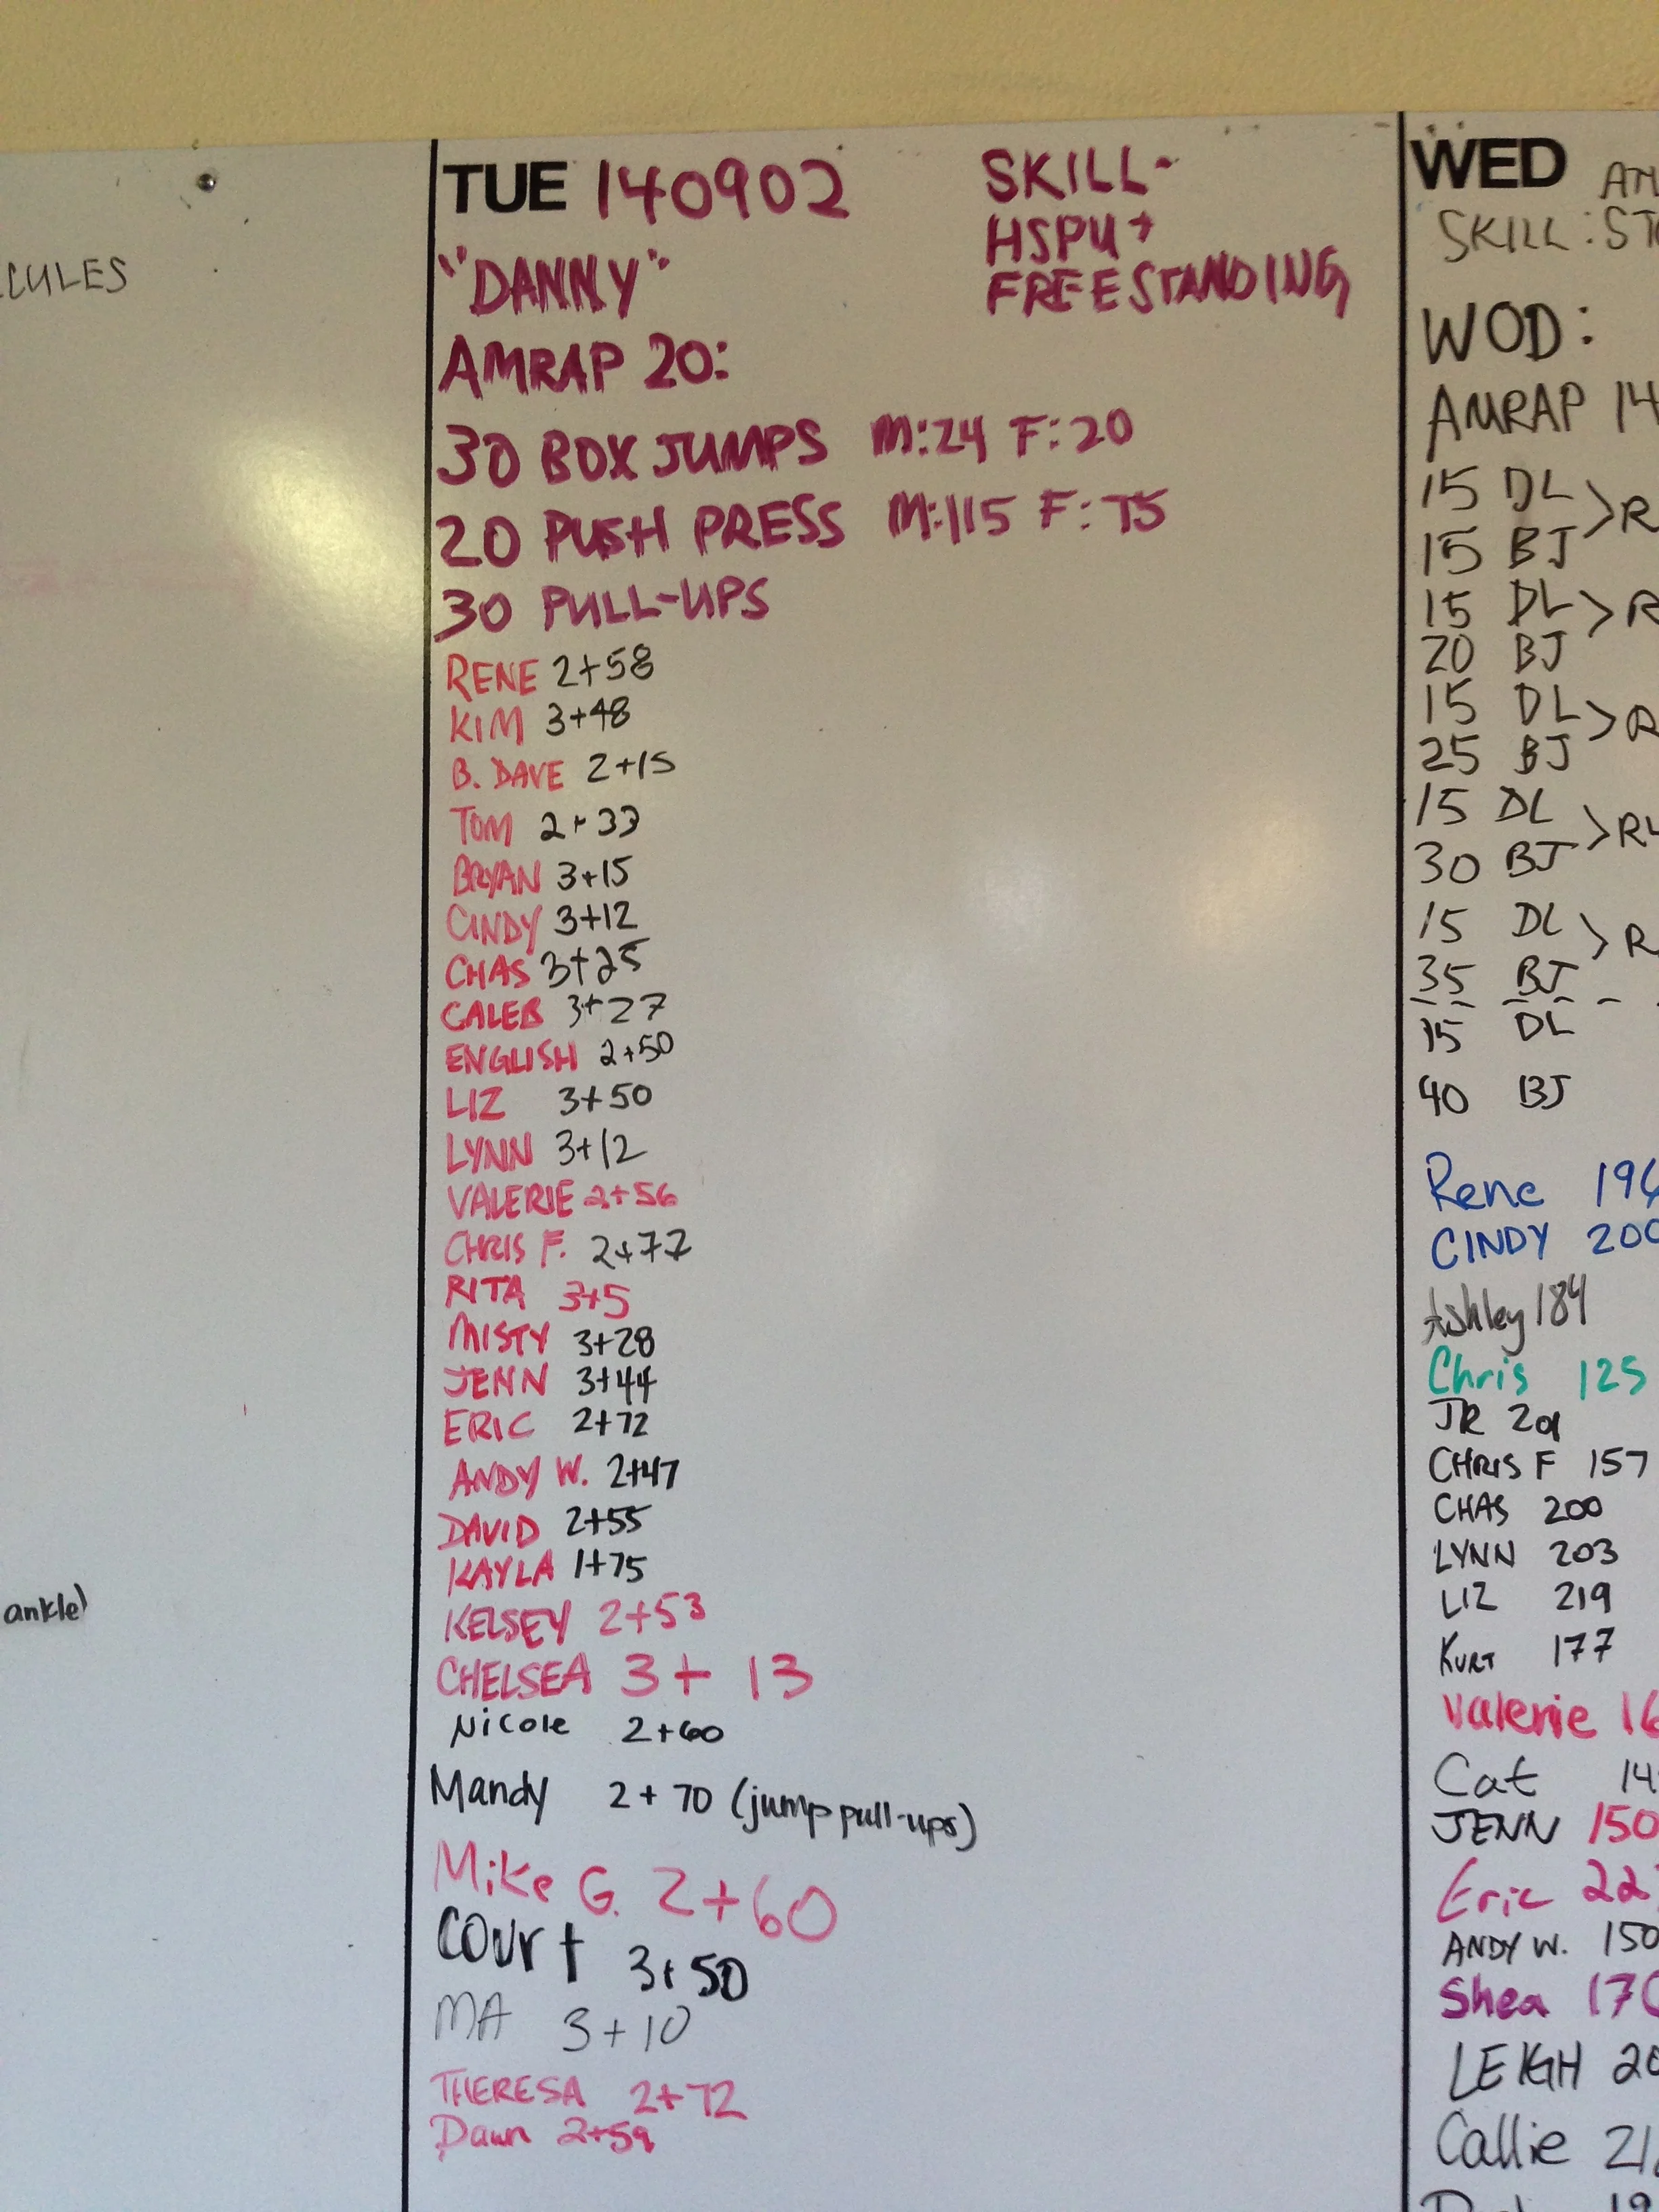 CULES
ankle)
TUE 140902
SKILL-
HSPU +
FREESTANDING
"DANNY"
AMRAP 20:
30 BOX JUMPS M:24 F:20
20 PUSH PRESS M:115 F:75
30 PULL-UPS
RENE 2+58
KIM 3+48
B. DAVE 2+15
TOM 2+33
BRYAN 3+15
CINDY 3+12
CHAS 3+25
CALEB 3+27
ENGLISH 2+50
LIZ 3+50
LYNN 3+12
VALERIE 2+56
CHRIS F. 2+77
RITA 3+5
MISTY 3+28
JENN 3+44
ERIC 2+72
ANDY W. 2+47
DAVID 2+55
KAYLA 1+75
KELSEY 2+53
CHELSEA 3+ 13
Nicole 2+60
Mandy 2+70 (jump pull-ups)
Mike G. 2+60
Court 3+50
MA 3+10
THERESA 2+72
Dawn 2+59
WED
SKILL: ST
WOD:
AMRAP 14
15 DL > R
15 BJ
15 DL > R
20 BJ
15 DL > R
25 BJ
15 DL > R
30 BJ
15 DL > R
35 BJ
15 DL
40 BJ
Rene 19
CINDY 200
Ashley 184
Chris 125
JR 201
CHRIS F 157
CHAS 200
LYNN 203
LIZ 219
KURT 177
Valerie 16
Cat 14
JENN 150
Eric 22
ANDY W. 150
Shea 170
LEIGH 20
Callie 21